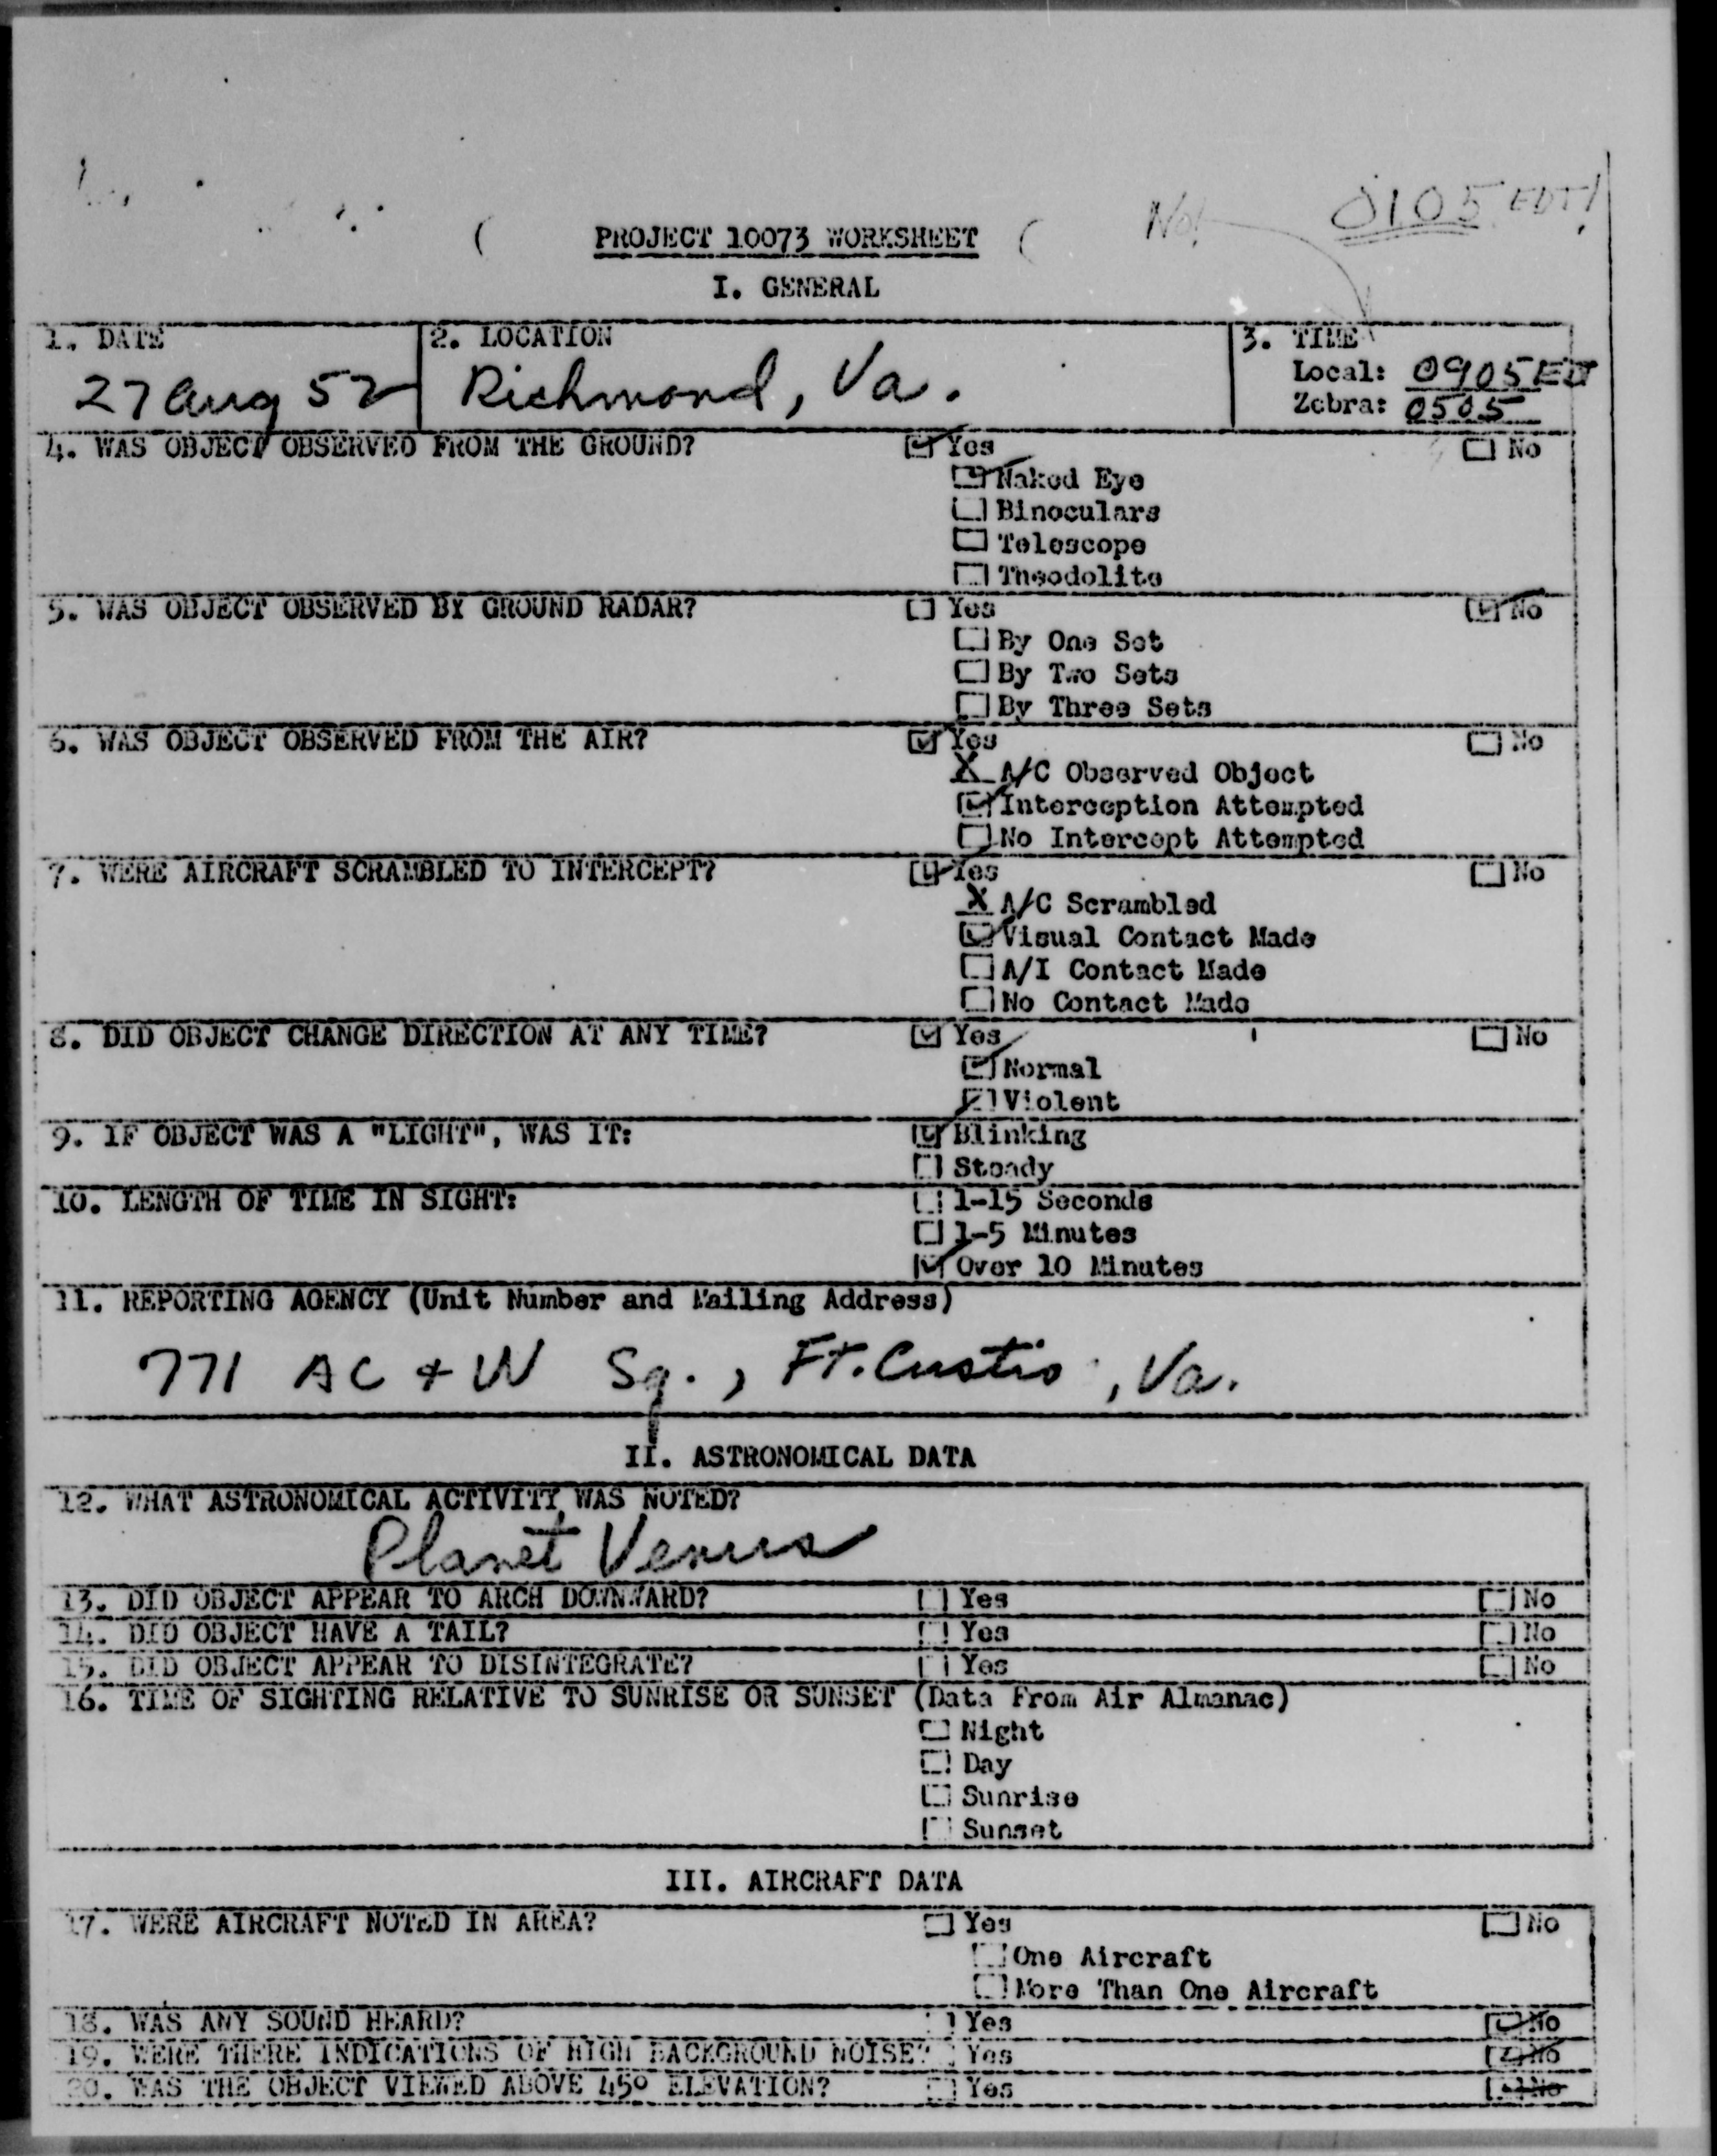 No! 0105 EDT!
PROJECT 10073 WORKSHEET
I. GENERAL
1. DATE
27 Aug 52
2. LOCATION
Richmond, Va.
3. TIME
Local: 0905 ED
Zebra: 0505
4. WAS OBJECT OBSERVED FROM THE GROUND? Yes No
Naked Eye
Binoculars
Telescope
Theodolite
5. WAS OBJECT OBSERVED BY GROUND RADAR? Yes No
By One Set
By Two Sets
By Three Sets
6. WAS OBJECT OBSERVED FROM THE AIR? Yes No
X A/C Observed Object
Interception Attempted
No Intercept Attempted
7. WERE AIRCRAFT SCRAMBLED TO INTERCEPT? Yes No
X A/C Scrambled
Visual Contact Made
A/I Contact Made
No Contact Made
8. DID OBJECT CHANGE DIRECTION AT ANY TIME? Yes No
Normal
Violent
9. IF OBJECT WAS A "LIGHT", WAS IT: Blinking
Steady
10. LENGTH OF TIME IN SIGHT: 1-15 Seconds
1-5 Minutes
Over 10 Minutes
11. REPORTING AGENCY (Unit Number and Mailing Address)
771 AC & W Sq., Ft. Custis, Va.
II. ASTRONOMICAL DATA
12. WHAT ASTRONOMICAL ACTIVITY WAS NOTED?
Planet Venus
13. DID OBJECT APPEAR TO ARCH DOWNWARD? Yes No
14. DID OBJECT HAVE A TAIL? Yes No
15. DID OBJECT APPEAR TO DISINTEGRATE? Yes No
16. TIME OF SIGHTING RELATIVE TO SUNRISE OR SUNSET (Data From Air Almanac)
Night
Day
Sunrise
Sunset
III. AIRCRAFT DATA
17. WERE AIRCRAFT NOTED IN AREA? Yes No
One Aircraft
More Than One Aircraft
18. WAS ANY SOUND HEARD? Yes No
19. WERE THERE INDICATIONS OF HIGH BACKGROUND NOISE? Yes No
20. WAS THE OBJECT VIEWED ABOVE 45° ELEVATION? Yes No